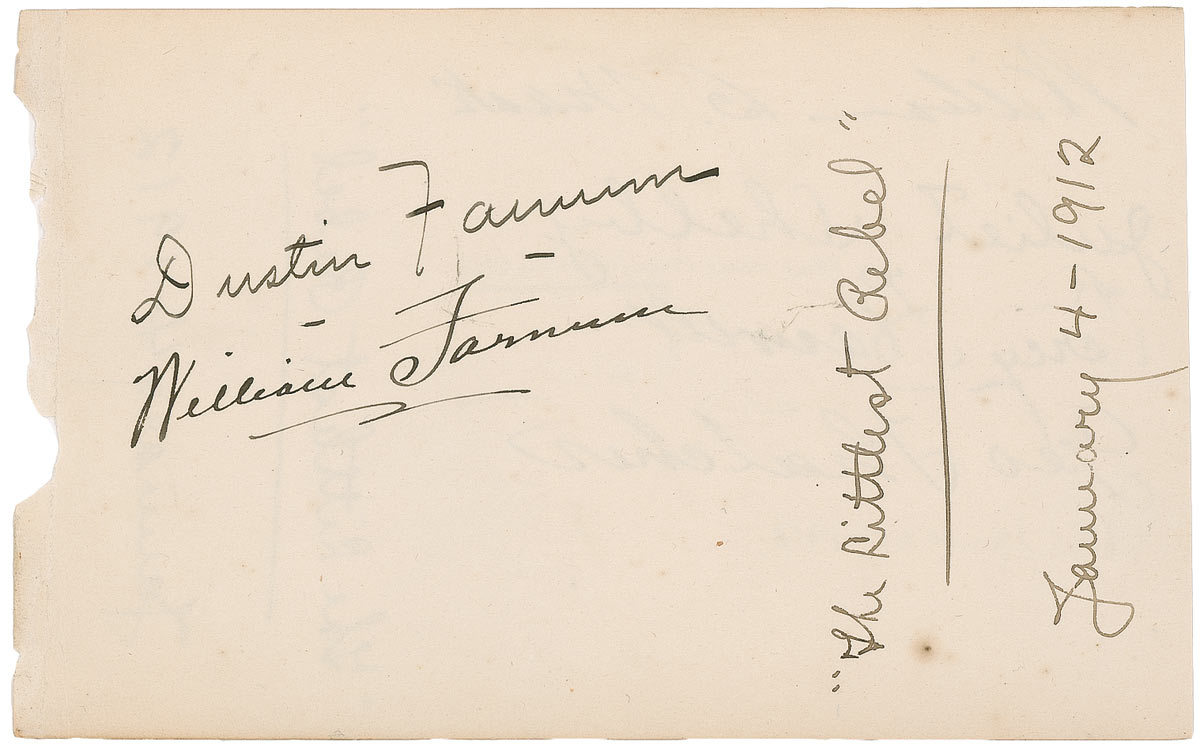 Dustin Farnum -
- William Farnum
"The Littlest Rebel"
January 4-1912